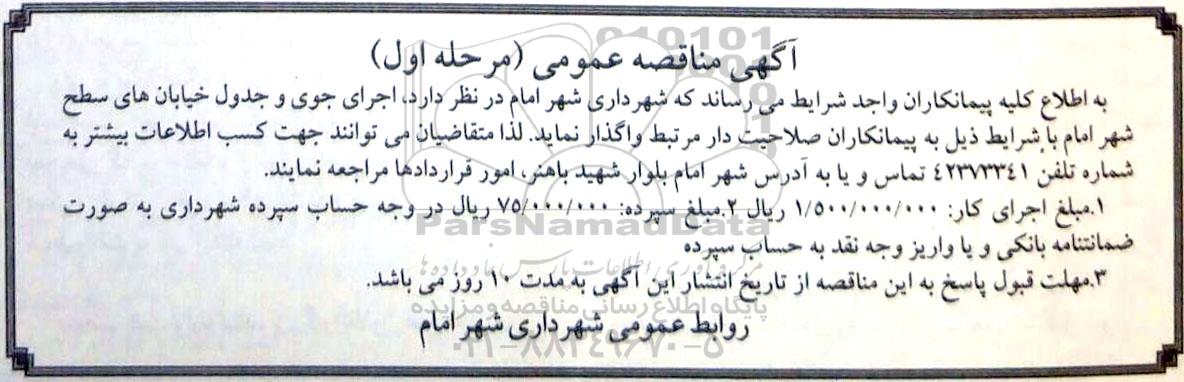 آگهی مناقصه عمومی (مرحله اول)
به اطلاع کلیه پیمانکاران واجد شرایط می رساند که شهرداری شهر امام در نظر دارد، اجرای جوی و جدول خیابان های سطح
شهر امام با شرایط ذیل به پیمانکاران صلاحیت دار مرتبط واگذار نماید. لذا متقاضیان می توانند جهت کسب اطلاعات بیشتر به
شماره تلفن ٤٢٣٧٣٣٤١ تماس و یا به آدرس شهر امام بلوار شهید باهنر، امور قراردادها مراجعه نمایند.
۱.مبلغ اجرای کار: ۱/۵۰۰/۰۰۰/۰۰۰ ریال ۲.مبلغ سپرده: ۷۵/۰۰۰/۰۰۰ ریال در وجه حساب سپرده شهرداری به صورت
ParsNamadData
ضمانتنامه بانکی و یا واریز وجه نقد به حساب سپرده
مرکز فرآوری اطلاعات پارس نماد داده ها
۳.مهلت قبول پاسخ به این مناقصه از تاریخ انتشار این آگهی به مدت ۱۰ روز می باشد.
پایگاه اطلاع رسانی مناقصه و مزایده
روابط عمومی شهرداری شهر امام
۰۲۱-۸۸۳٤۹۶۷۰-۵